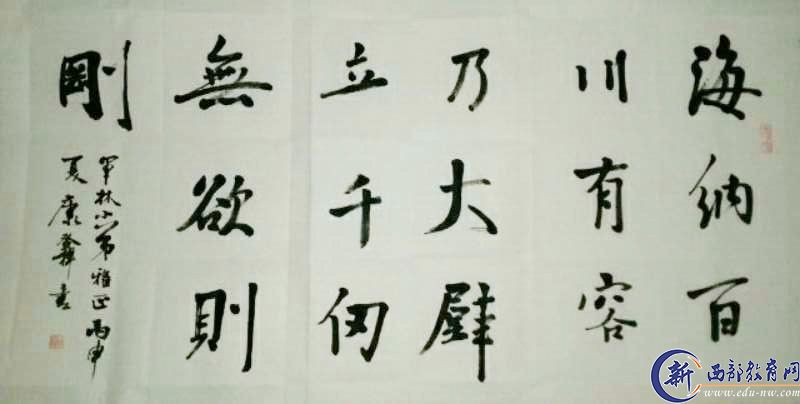 海纳百
川有容
乃大壁
立千仞
無欲則
剛
軍林小弟雅正丙申
夏康
書
新 西部教育网
www.edu-nw.com